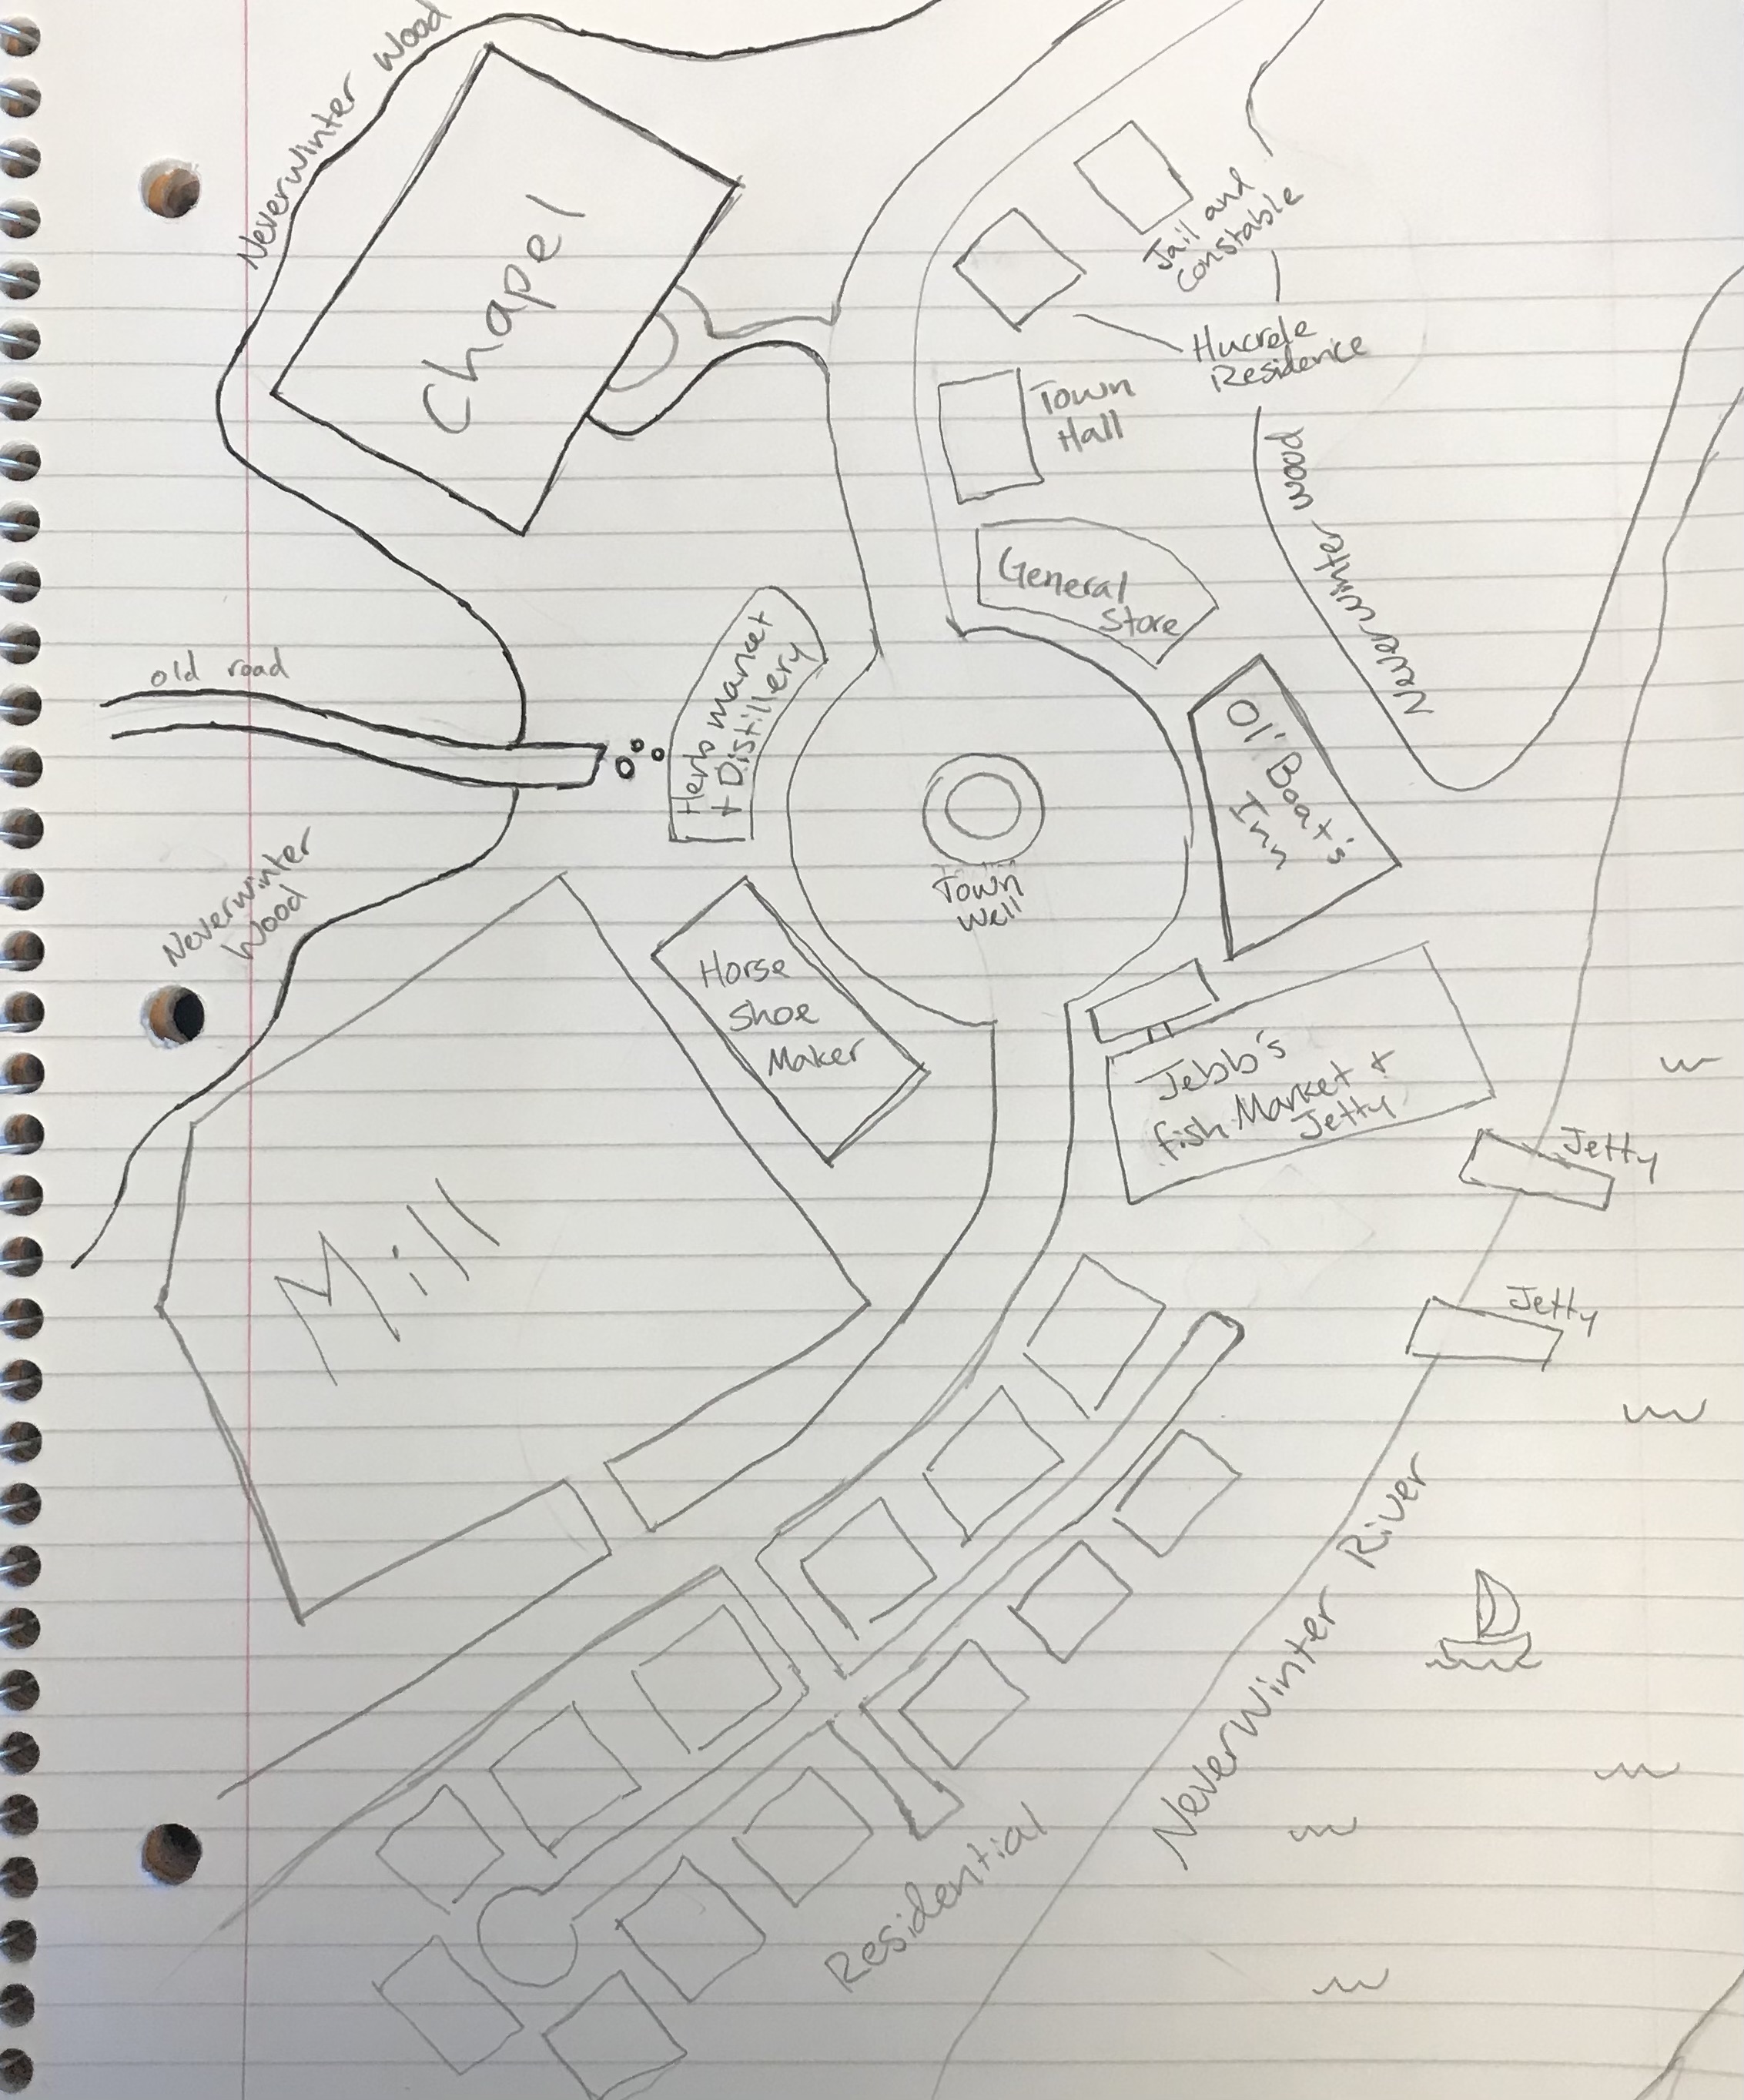 Neverwinter Wood
Chapel
Jail and
Constable
Hucrele
Residence
Town
Hall
Neverwinter wood
General
Store
old road
Herb market
+ Distillery
Ol' Boat's
Inn
Town
Well
Neverwinter
Wood
Horse
Shoe
Maker
Jebb's
fish Market +
Jetty
Jetty
Mill
Jetty
Neverwinter River
Residential